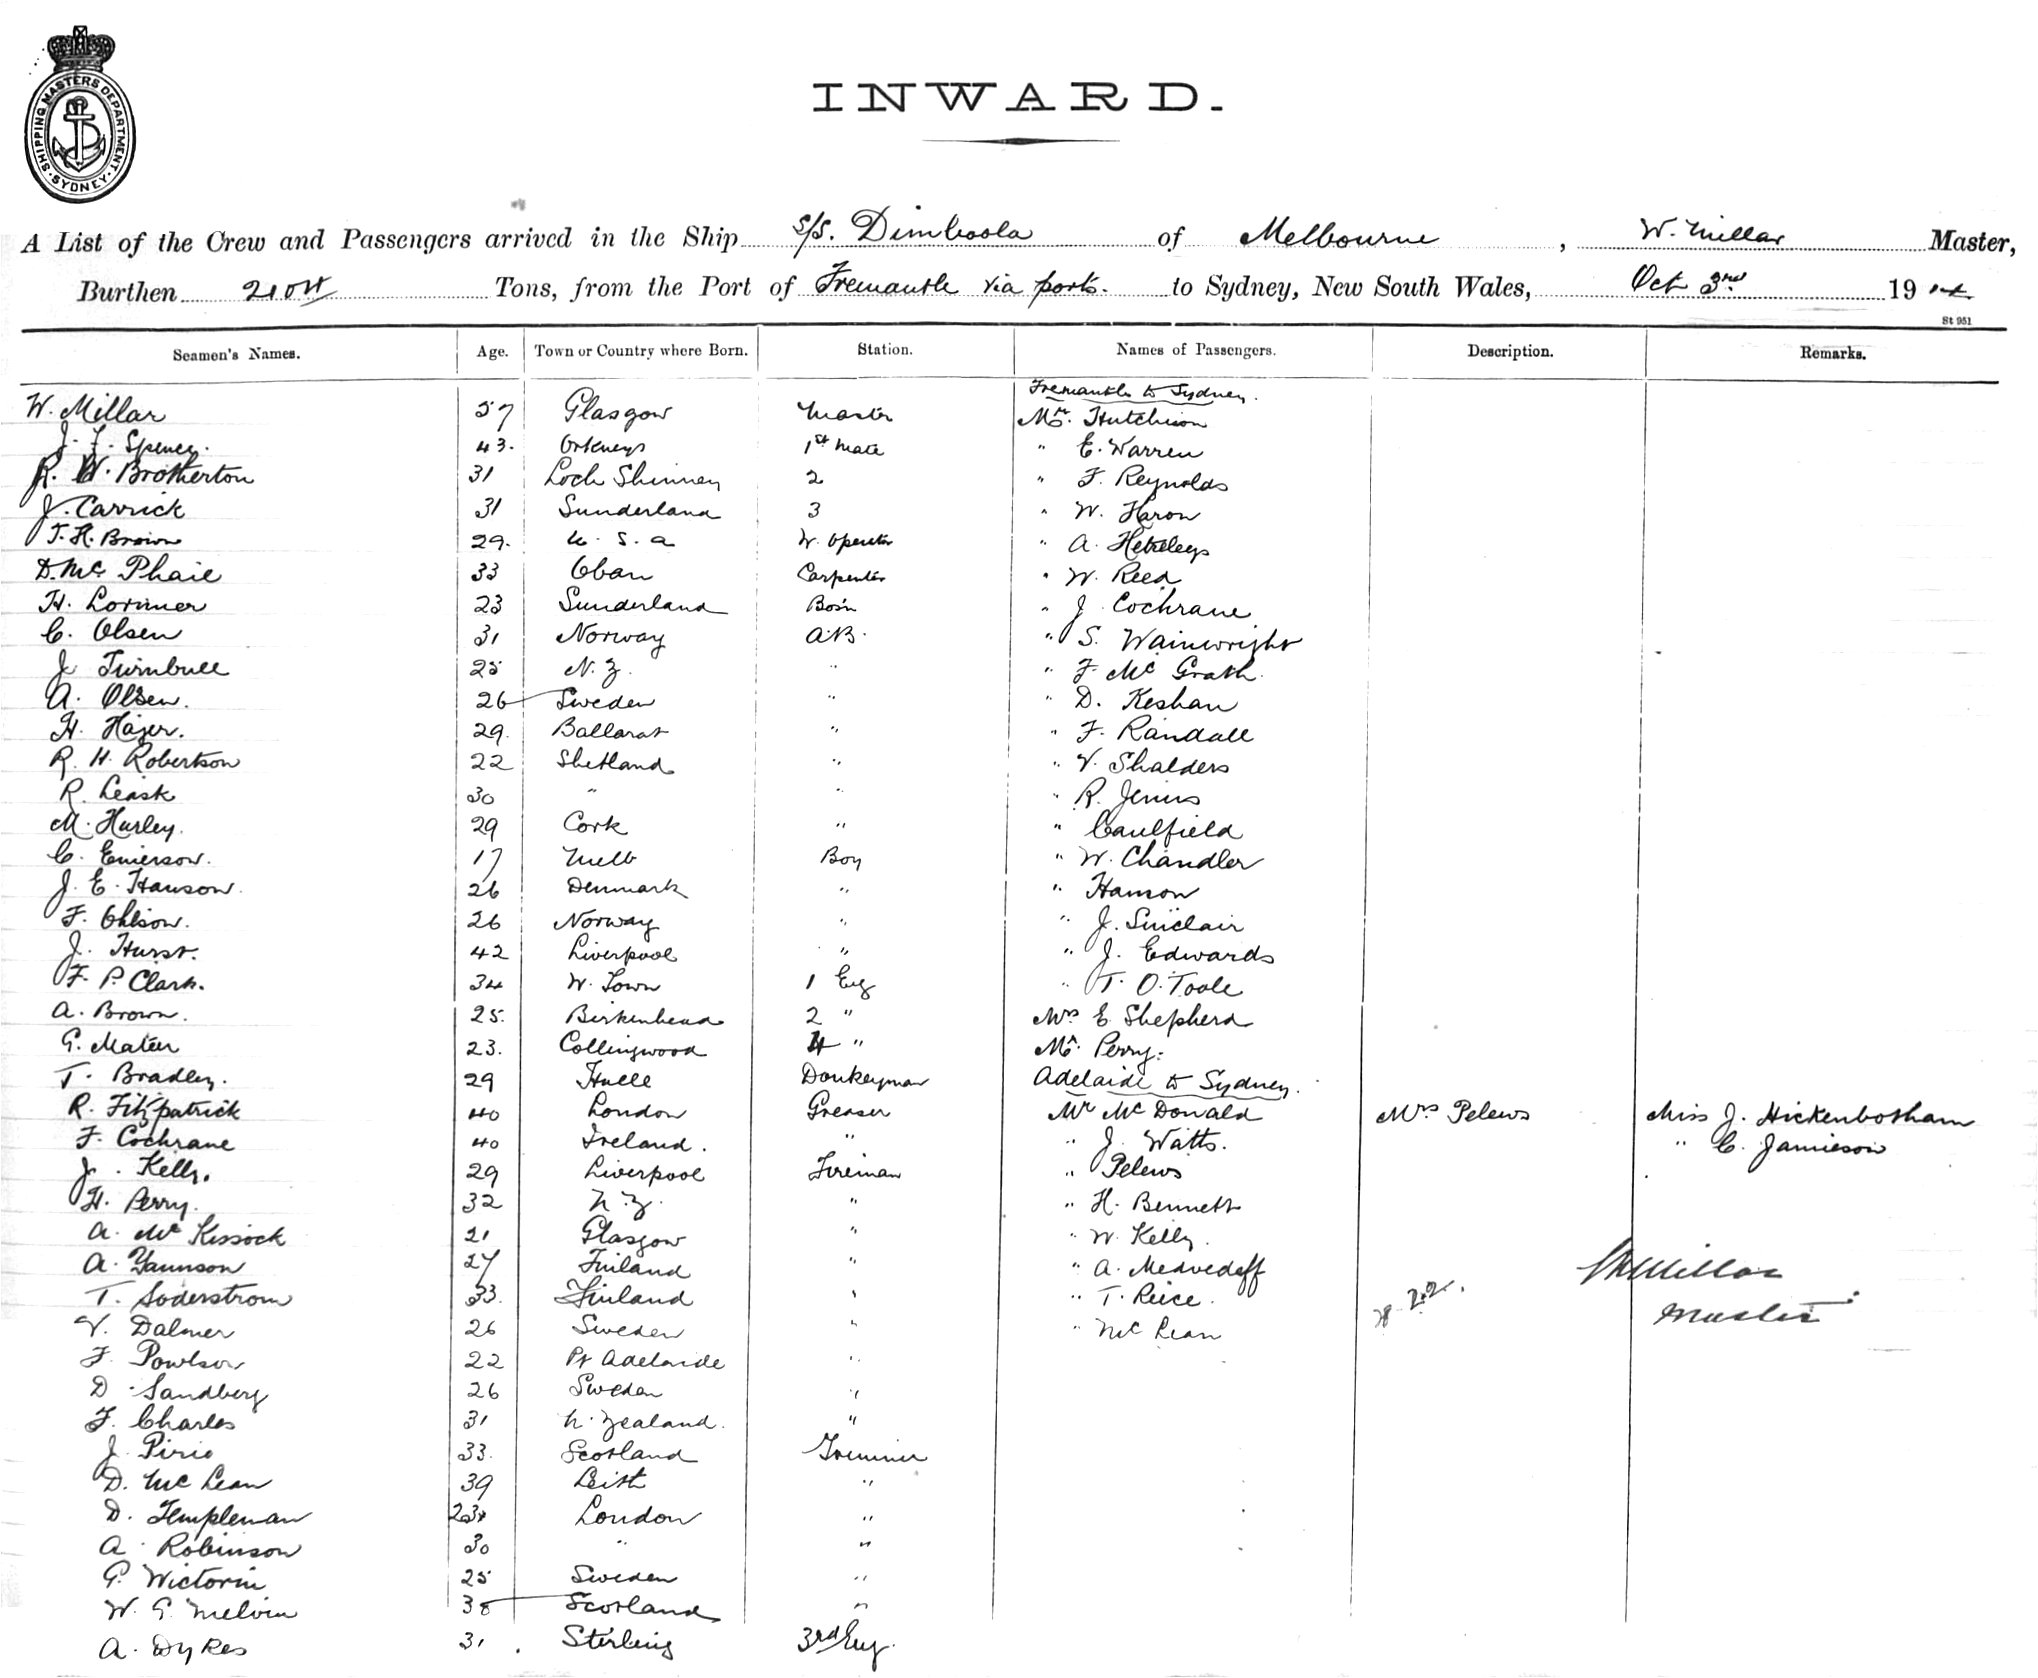 SHIPPING MASTERS DEPARTMENT. SYDNEY.
INWARD.
A List of the Crew and Passengers arrived in the Ship S/S. Dimboola of Melbourne, W. Millar Master,
Burthen Tons, from the Port of Fremantle via ports. to Sydney, New South Wales, Oct 3rd 1914
St 951
Seamen's Names. Age. Town or Country where Born. Station. Names of Passengers. Description. Remarks.
Fremantle to Sydney.
W. Millar 57 Glasgow Master Mr. Hutchison
J. F. Spence. 43. Orkneys 1st Mate " E. Warren
R. W. Brotherton 31 Loch Shinney 2 " F. Reynolds
J. Carrick 31 Sunderland 3 " W. Haron
T. H. Brown 29. U. S. A W. Operator " A.
D. Mc Phail 33 Oban Carpenter " W. Reed
H. Lorimer 23 Sunderland Bosn " J. Cochrane
C. Olsen 31 Norway A.B. " S. Wainwright
J. Turnbull 25 N. Z. " " F. Mc Grath.
A. Olsen. 26 Sweden " " D. Keshan
H. Hajer. 29. Ballarat " " F. Randall
R. H. Robertson 22 Shetland " " V. Shalders
R. Leask 30 " " " R.
M. Hurley. 29 Cork " " Caulfield
C. Emerson. 17 Melb Boy " W. Chandler
J. E. Hanson. 26 Denmark " " Hanson
F. Ohlson. 26 Norway " " J. Sinclair
J. Hurst. 42 Liverpool " " J. Edwards
F. P. Clark. 34 W. Town 1 Eng " T. O. Toole
A. Brown. 25. Birkenhead 2 " Mrs E. Shepherd
G. Mateer 23. Collingwood 4 " Mr. Perry.
T. Bradley. 29 Hull Donkeyman Adelaide to Sydney.
R. Fitzpatrick 40 London Greaser Mr Mc Donald Mrs Pelews Miss J. Hickenbotham
F. Cochrane 40 Ireland. " " J. Watts. " C. Jamieson
J. Kelly. 29 Liverpool Fireman " Pelews
H. Perry. 32 N. Z. " " H. Bennett
A. Mc Kissock 21 Glasgow " " W. Kelly.
A. Yannson 27 Finland " " A. Medvedeff
T. Soderstrom 33. Finland " " T. Reice.
V. Dalmer 26 Sweden " " Mc Lean
F. Powlson 22 Pt Adelaide "
D. Sandberg 26 Sweden "
F. Charles 31 N. Zealand. "
J. Pirie 33. Scotland Trimmer
D. Mc Lean 39 Leith "
D. Templeman London "
A. Robinson 30 " "
G. Wictorin 25 Sweden "
W. G. Melvin 38 Scotland "
A. Dykes 31. Stirling 3rd Eng.
W Millar
Master